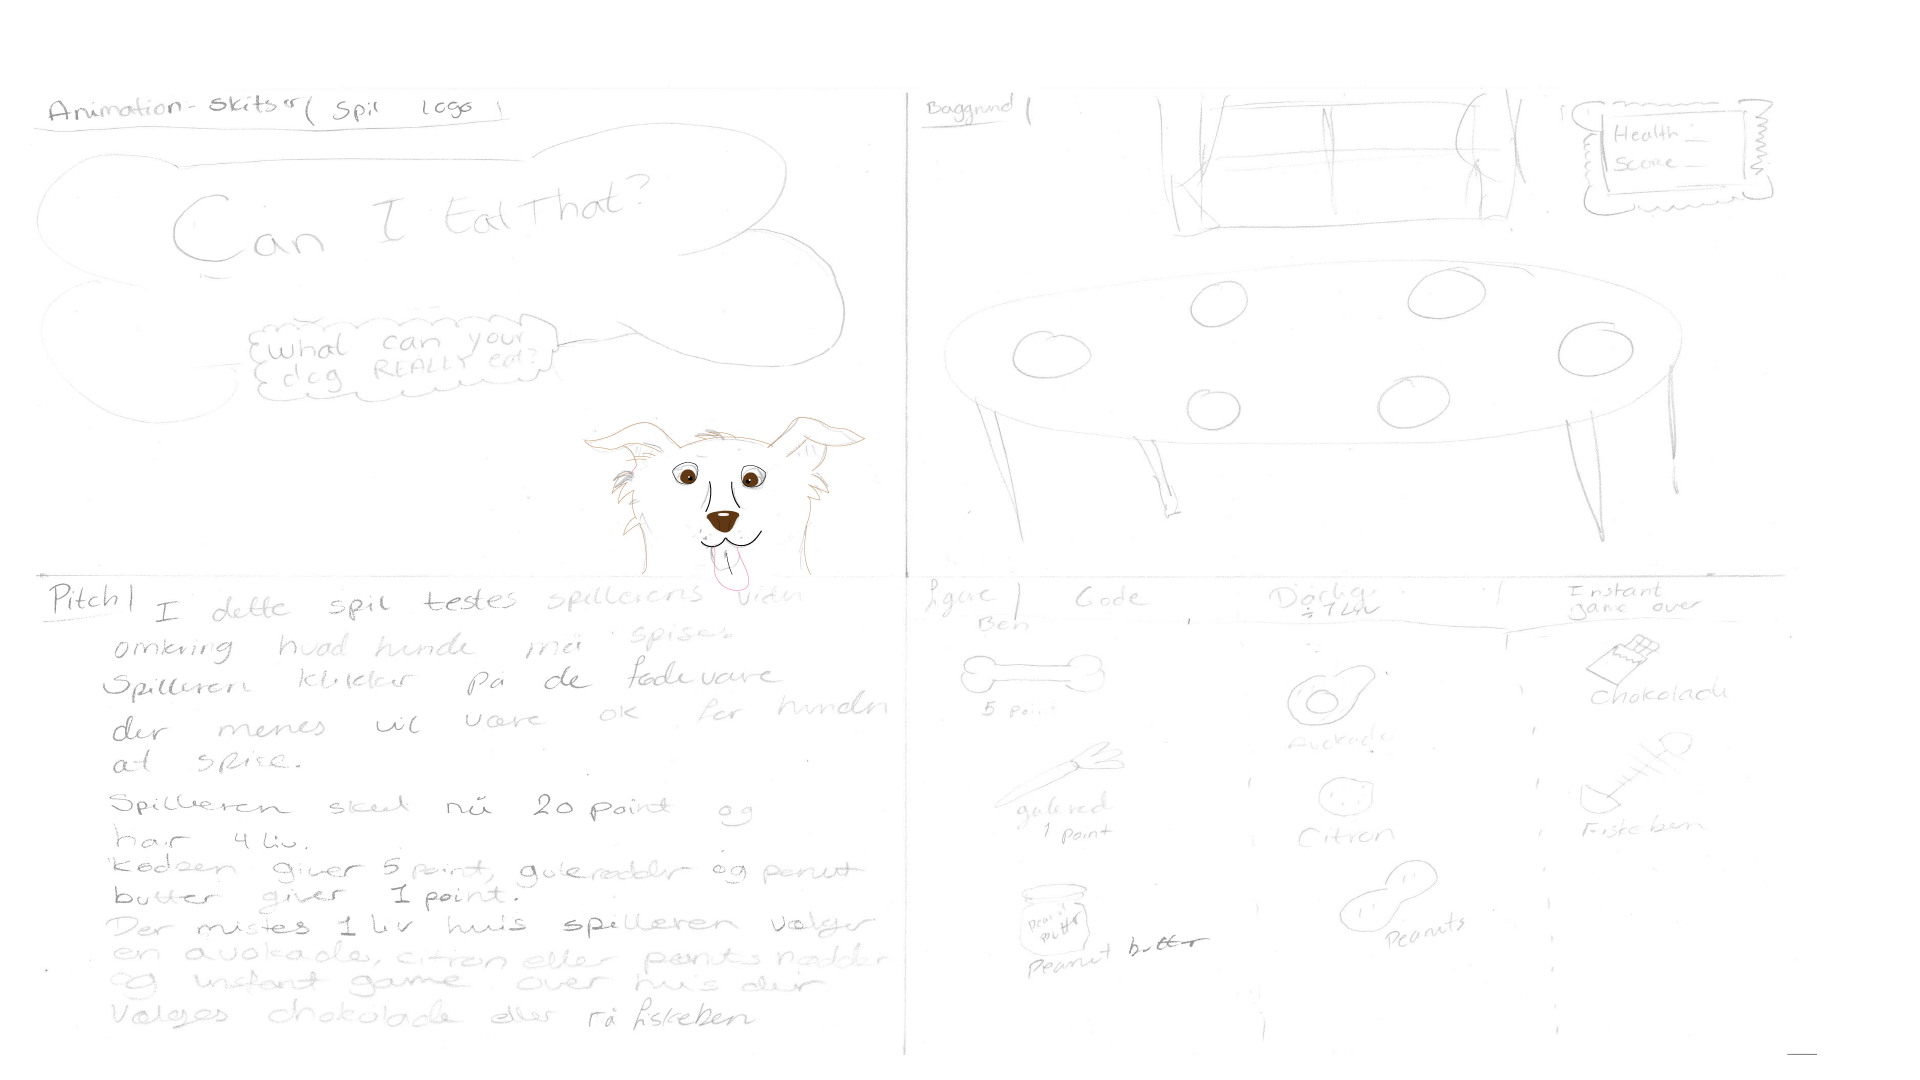 Animation-skitser ( Spil logo )
Can I Eat That?
What can your
dog REALLY eat?
Baggrund |
Health:
Score
Pitch | I dette spil testes spillerens viden
omkring hvad hunde må spise.
Spilleren klikker på de fødevare
der menes vil være ok for hunden
at spise.
Spilleren skal nå 20 point og
har 4 liv.
Kødben giver 5 point, gulerødder og peanut
butter giver 1 point.
Der mistes 1 liv hvis spilleren vælger
en avokado, citron eller peanuts nødder
og instant game over hvis der
vælges chokolade eller rå fiskeben
Gode
Dårlig
÷ 1 Liv
Instant
game over
Ben
5 point
gulerod
1 point
Peanut
butter
Peanut butter
Citron
Peanuts
Chokolade
Fiskeben